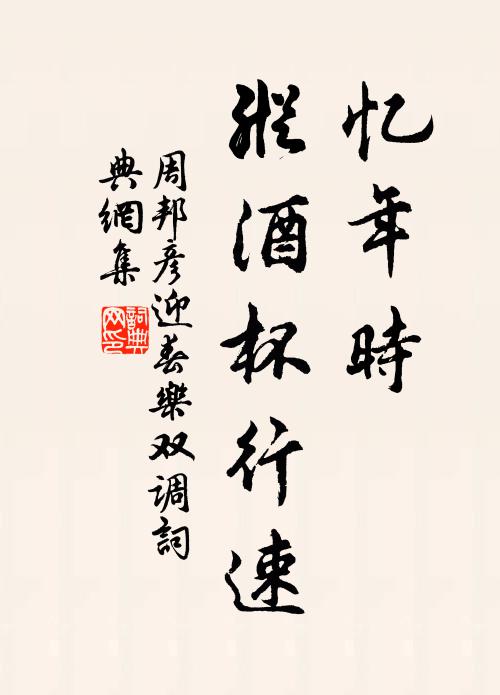 忆年時
縱酒杯行速
周邦彦迎春樂双调詞
典網集
詞典网印